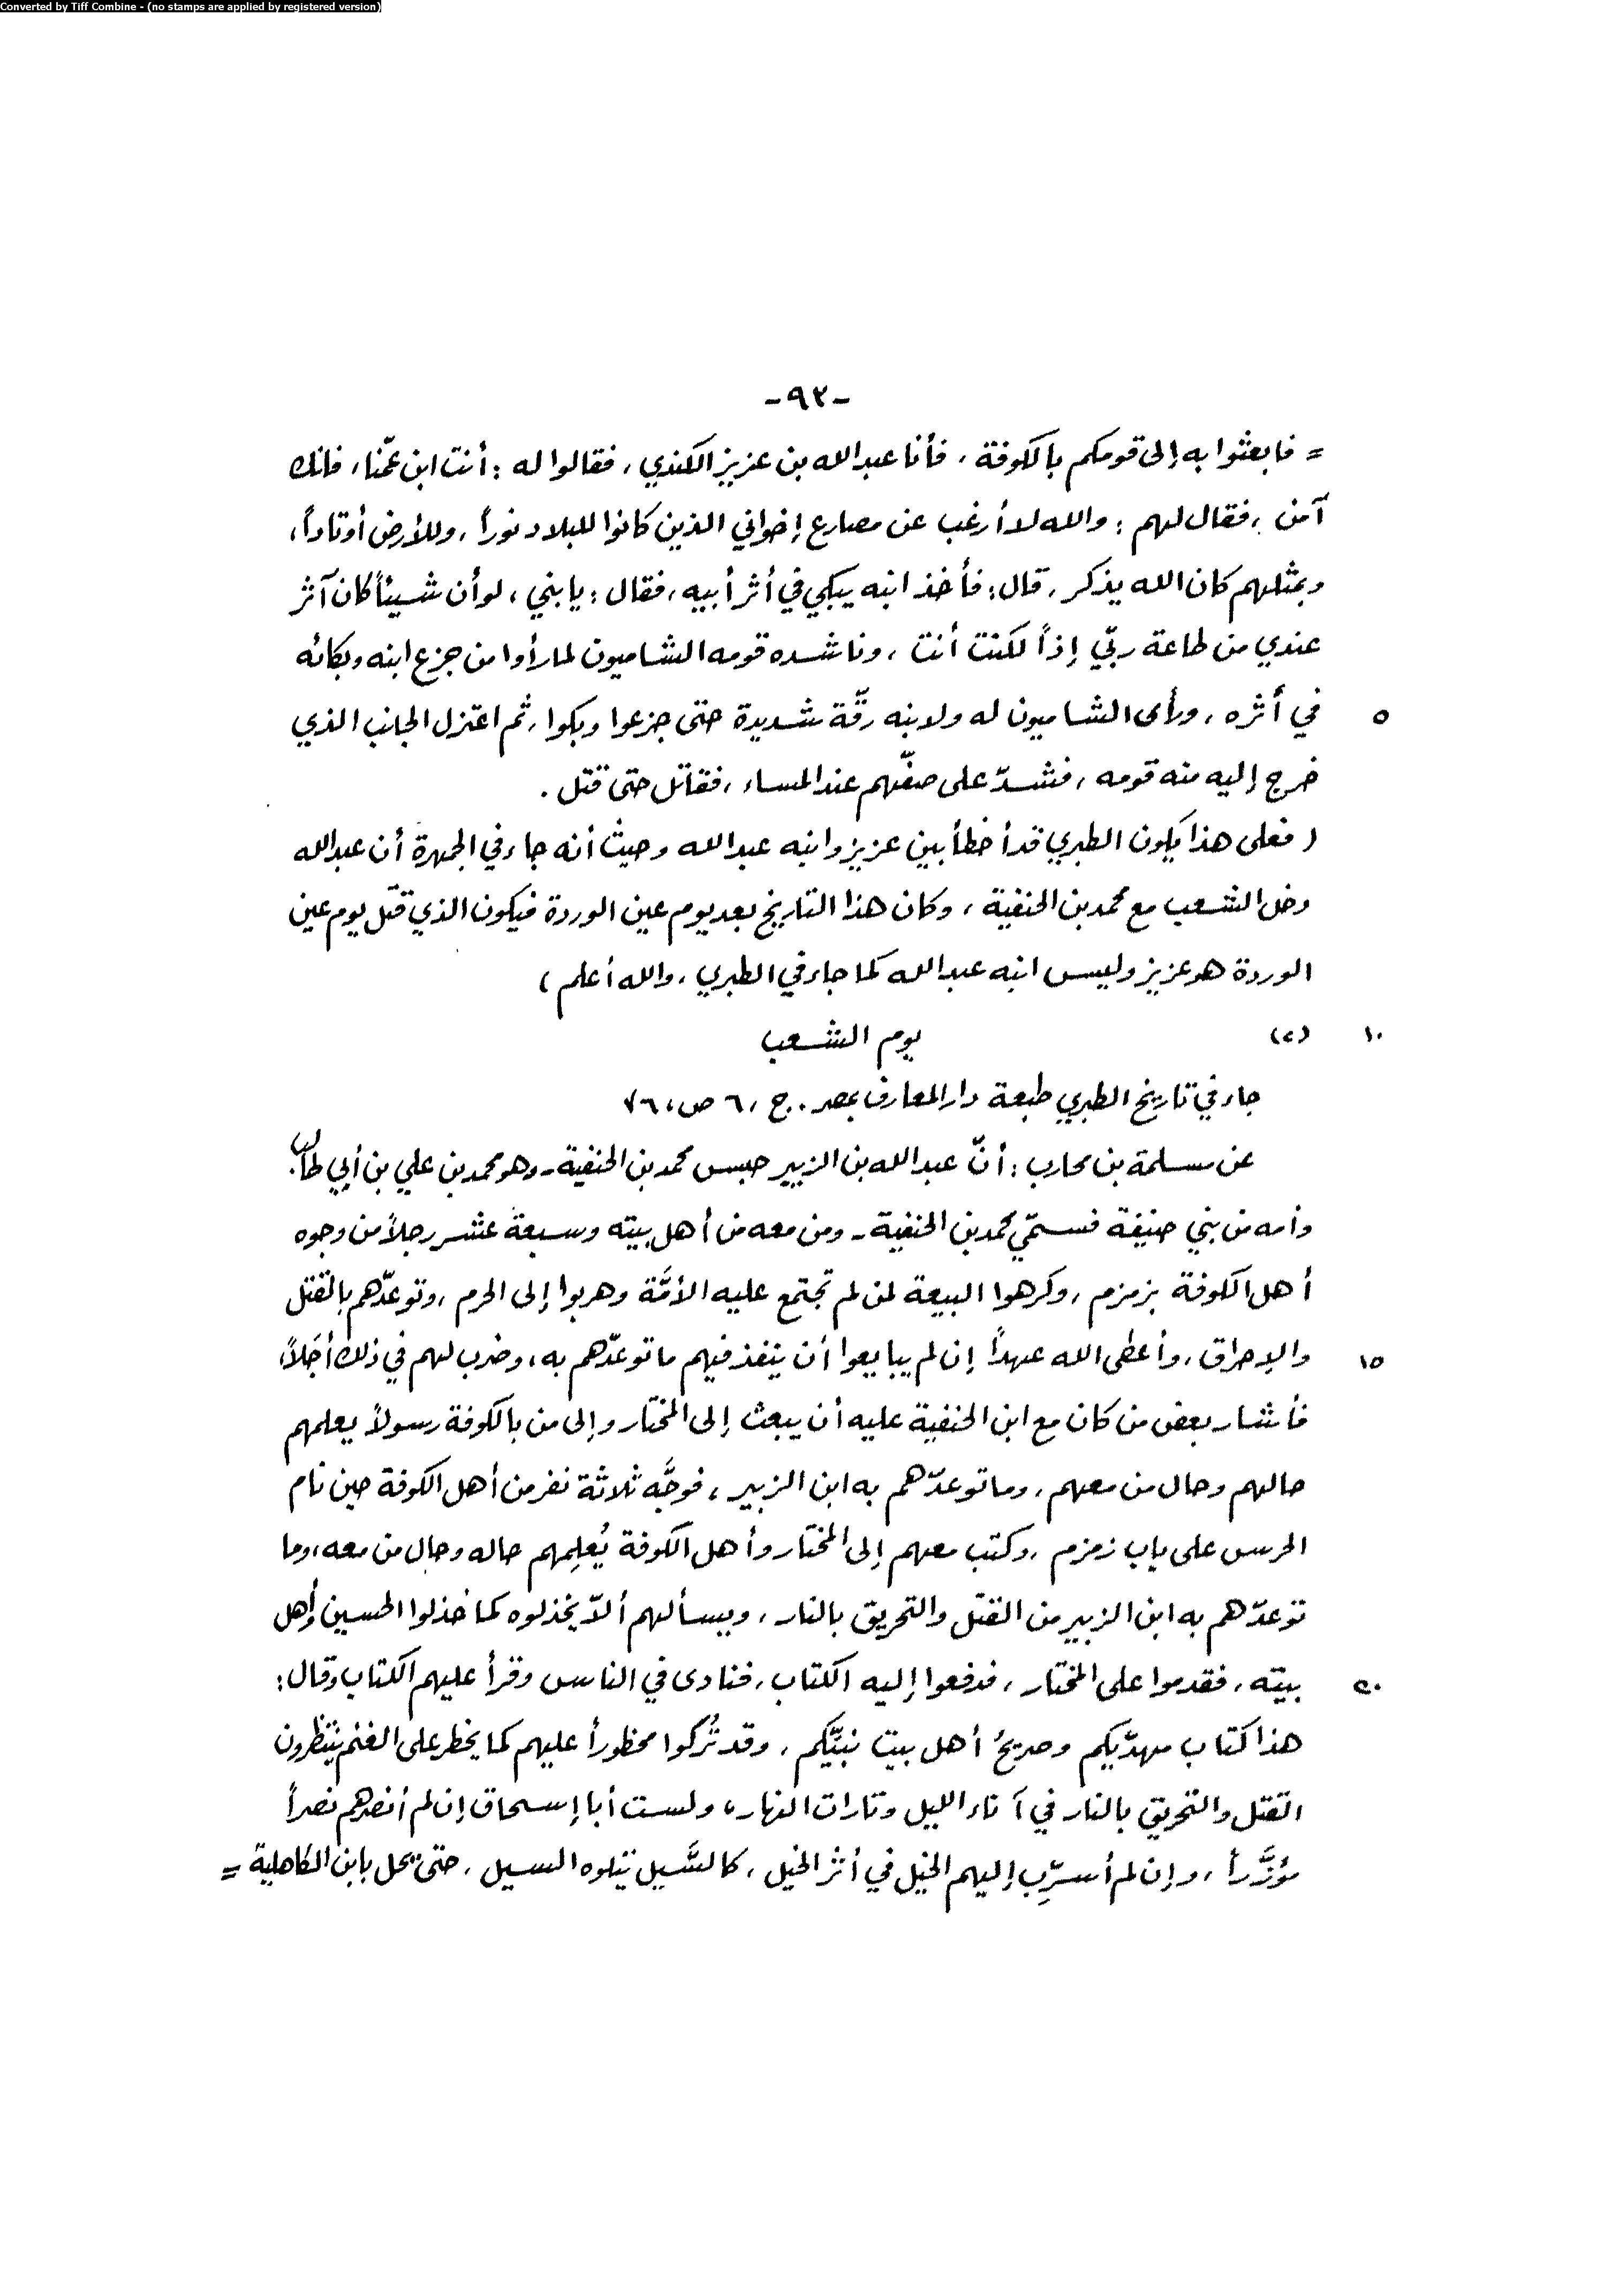 Converted by Tiff Combine - (no stamps are applied by registered version)
-٩٢-
= فابعثوا به إلى قومكم بالكوفة، فأنا عبدالله بن عزيز الكندي، فقالوا له: أنت ابن عمّنا، فانك
آمن، فقال لهم: والله لا أرغب عن مصارع إخواني الذين كانوا للبلاد نوراً، وللأرض أوتاداً،
وبمثلهم كان الله يذكر، قال: فأخذ ابنه يبكي في أثر أبيه، فقال: يا بني، لو أن شيئاً كان آثر
عندي من طاعة ربّي إذاً لكنت أنت، وناشده قومه الشاميون لما رأوا من جزع ابنه وبكائه
في أثره، ورأى الشاميون له ولابنه رقّة شديدة حتى جزعوا وبكوا، ثم اعتزل الجانب الذي ٥
خرج إليه منه قومه، فشدّ على صفّهم عند المساء، فقاتل حتى قتل.
( فعلى هذا يكون الطبري قد أخطأ بين عزيز وابنه عبدالله وحيث أنه جاء في الجمهرة أن عبدالله
دخل الشعب مع محمد بن الحنفية، وكان هذا التاريخ بعد يوم عين الوردة فيكون الذي قتل يوم عين
الوردة هو عزيز وليس ابنه عبدالله كما جاء في الطبري، والله أعلم )
(٢) يوم الشعب ١٠
جاء في تاريخ الطبري طبعة دار المعارف بمصر. ج، ٦ ص، ٧٦
عن مسلمة بن محارب: أنّ عبدالله بن الزبير حبس محمد بن الحنفية - وهو محمد بن علي بن أبي طالب.
وأمه من بني حنيفة فسمّي محمد بن الحنفية - ومن معه من أهل بيته وسبعة عشر رجلاً من وجوه
أهل الكوفة بزمزم، وكرهوا البيعة لمن لم تجتمع عليه الأمّة وهربوا إلى الحرم، وتوعّدهم بالقتل
والإحراق، وأعطى الله عهداً إن لم يبايعوا أن ينفذ فيهم ما توعّدهم به، وضرب لهم في ذلك أجَلاً، ١٥
فأشار بعض من كان مع ابن الحنفية عليه أن يبعث إلى المختار وإلى من بالكوفة رسولاً يعلمهم
حالهم وحال من معهم، وما توعدّهم به ابن الزبير، فوجَّه ثلاثة نفر من أهل الكوفة حين نام
الحرس على باب زمزم، وكتب معهم إلى المختار وأهل الكوفة يُعلِمهم حاله وحال من معه، وما
توعدّهم به ابن الزبير من القتل والتحريق بالنار، ويسألهم ألاّ يخذلوه كما خذلوا الحسين وأهل
بيته، فقدموا على المختار، فدفعوا إليه الكتاب، فنادى في الناس وقرأ عليهم الكتاب وقال: ٢٠
هذا كتاب مهديّكم وصريحُ أهل بيت نبيّكم، وقد تُركوا محظوراً عليهم كما يحظر على الغنم ينتظرون
القتل والتحريق بالنار في آناء الليل وتارات النهار، ولست أبا إسحاق إن لم أنصرهم نصراً
مؤزَّراً، وإن لم أسرِّب إليهم الخيل في أثر الخيل، كالسَّيل يتلوه السيل، حتى يحل بابن الكاهلية =